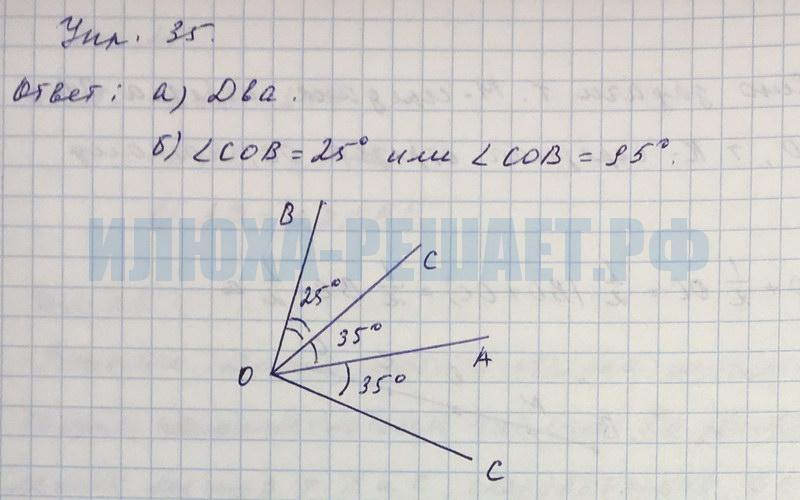 Упр. 35.
Ответ: а) Два.
б) ∠COB = 25° или ∠COB = 95°.
B
ИЛЮХА-РЕШАЕТ.РФ
C
25°
35°
A
O
35°
C